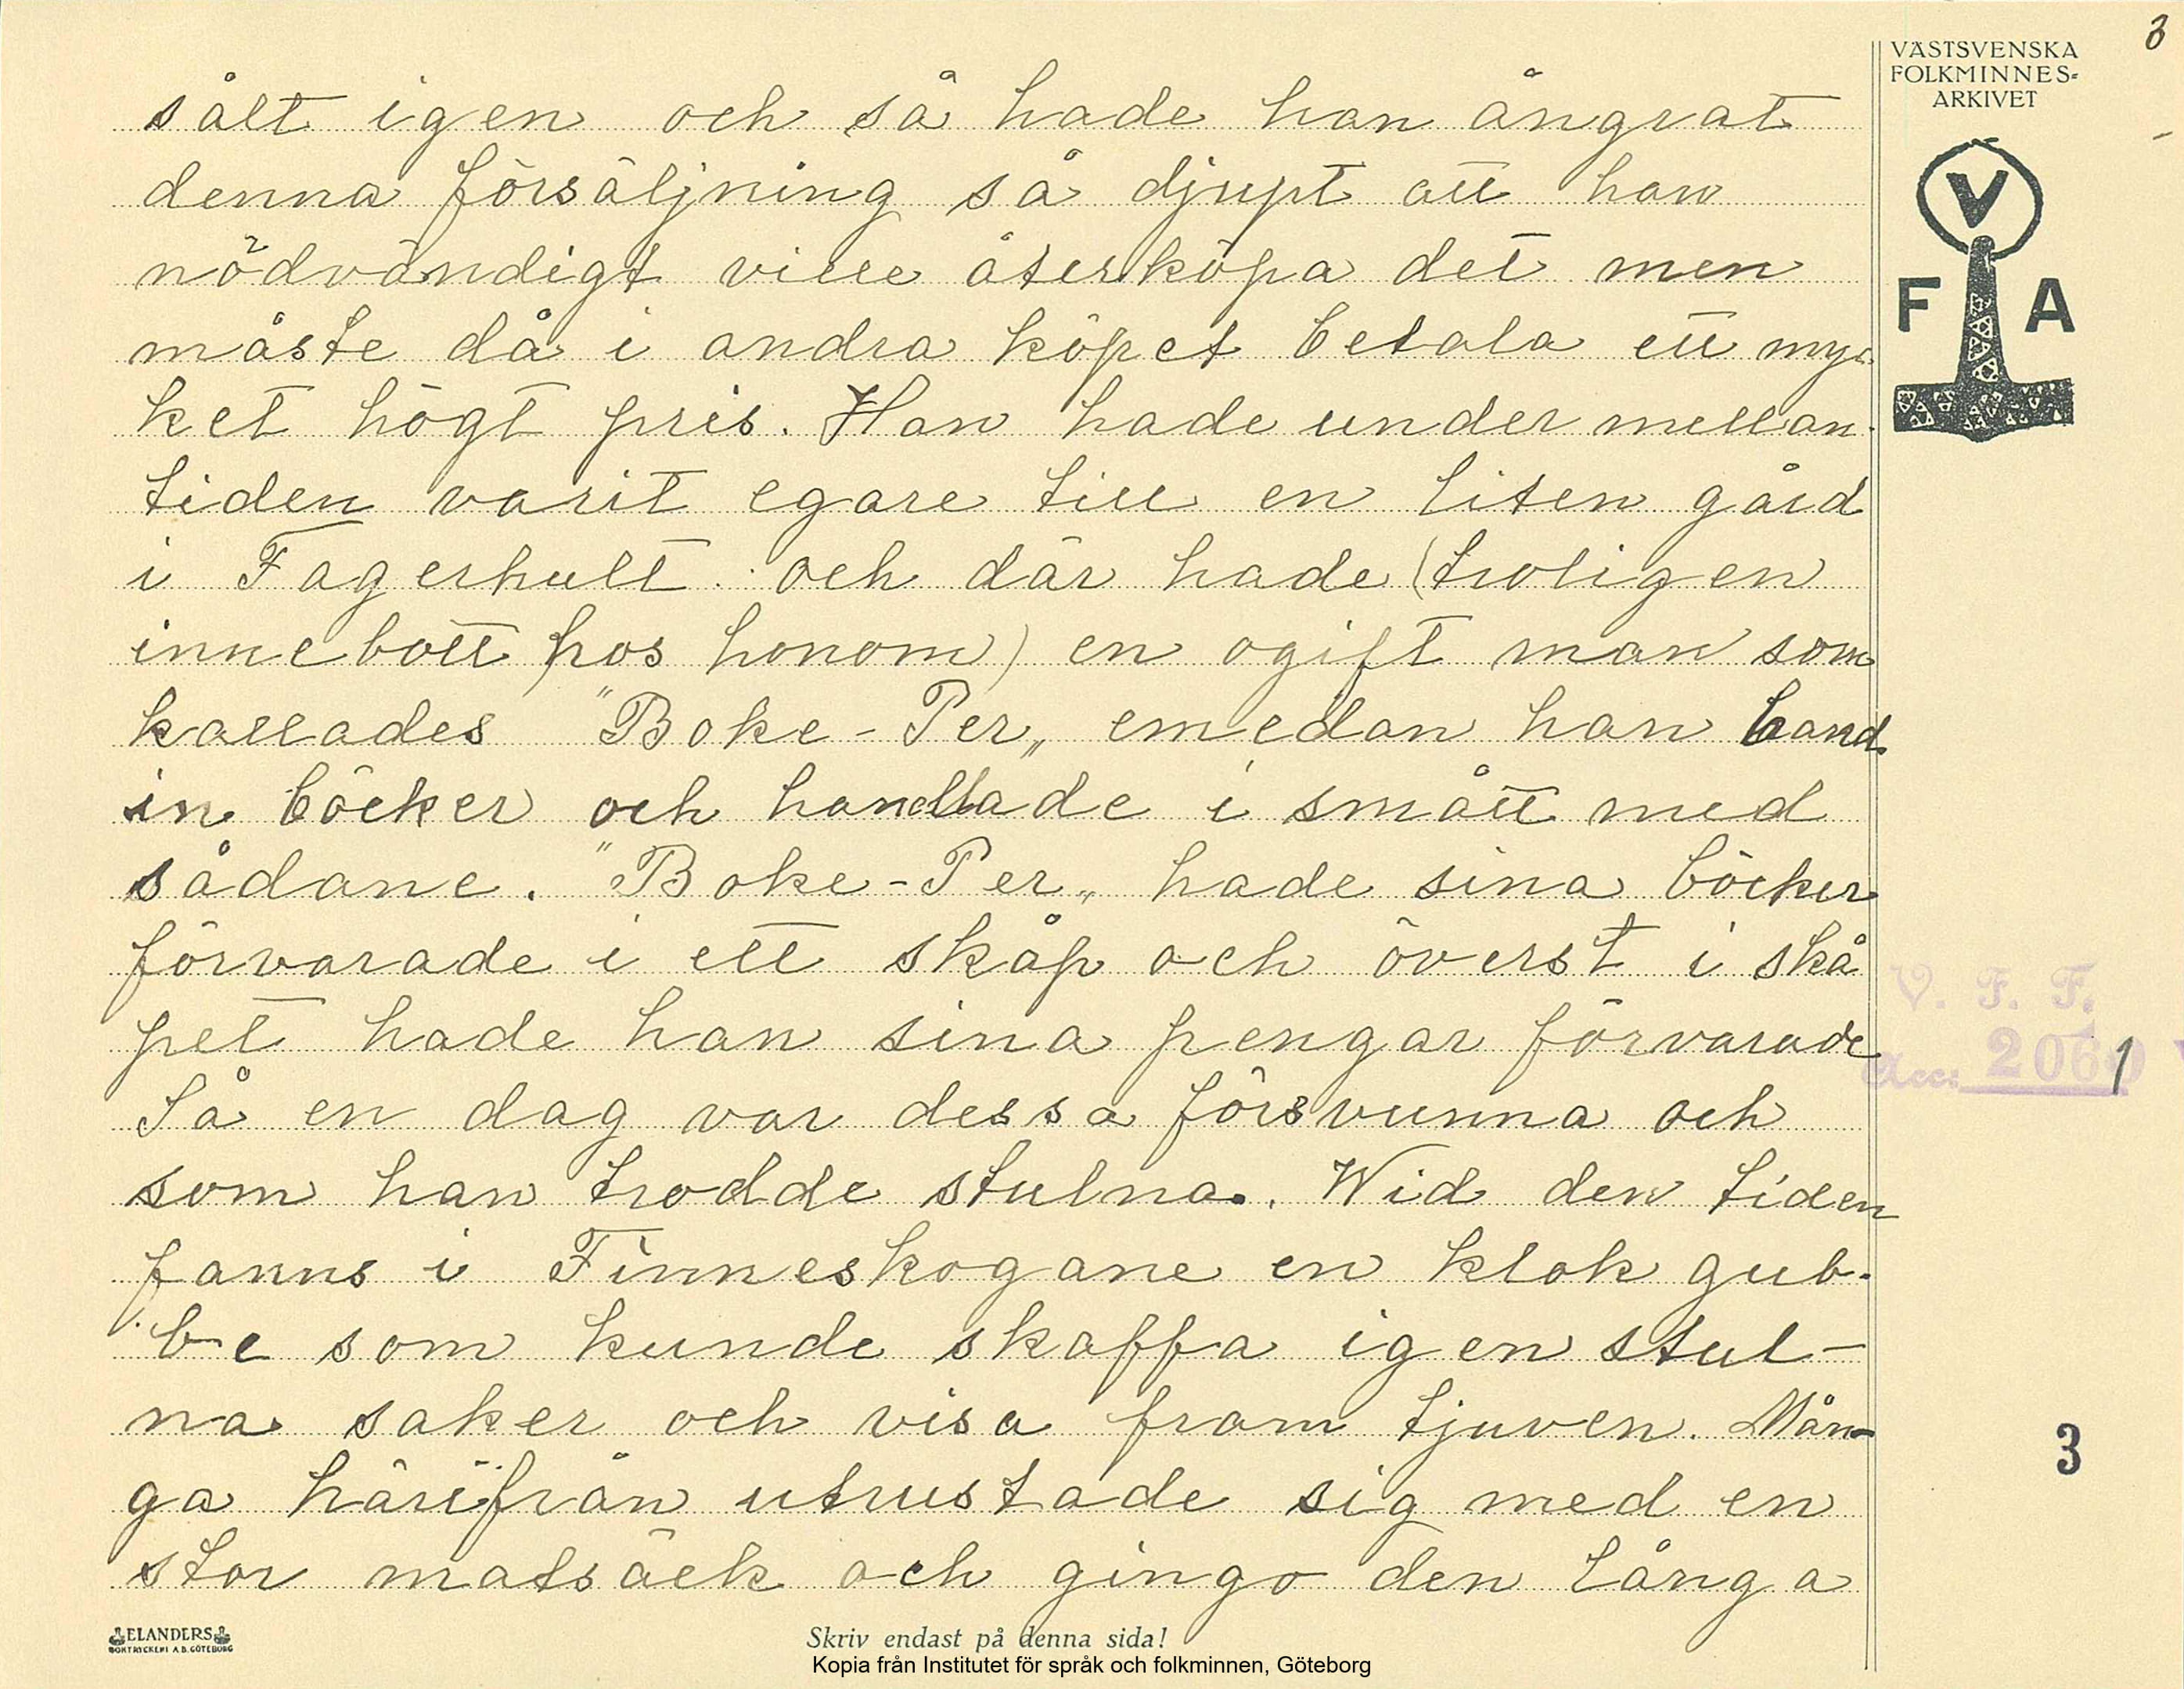 3
VÄSTSVENSKA
FOLKMINNES-
ARKIVET
V
F A
sålt igen och så hade han ångrat
denna försäljning så djupt att han
nödvändigt ville återköpa det men
måste då i andra köpet betala ett myc
ket högt pris. Han hade under mellan-
tiden varit egare till en liten gård
i Fagerhult och där hade (troligen
innebott hos honom) en ogift man som
kallades "Boke-Per„ emedan han band
in böcker och handlade i smått med
sådane. "Boke-Per„ hade sina böcker
förvarade i ett skåp och överst i skå
pet hade han sina pengar förvarade
Så en dag var dessa försvunna och
som han trodde stulna. Wid den tiden
fanns i Finneskogane en klok gub-
be som kunde skaffa igen stul-
na saker och visa fram tjuven. Mån-
ga härifrån utrustade sig med en
stor matsäck och gingo den långa
V. F. F.
Acc: 2060 1
3
ELANDERS
BOKTRYCKERI A.B. GÖTEBORG
Skriv endast på denna sida!
Kopia från Institutet för språk och folkminnen, Göteborg